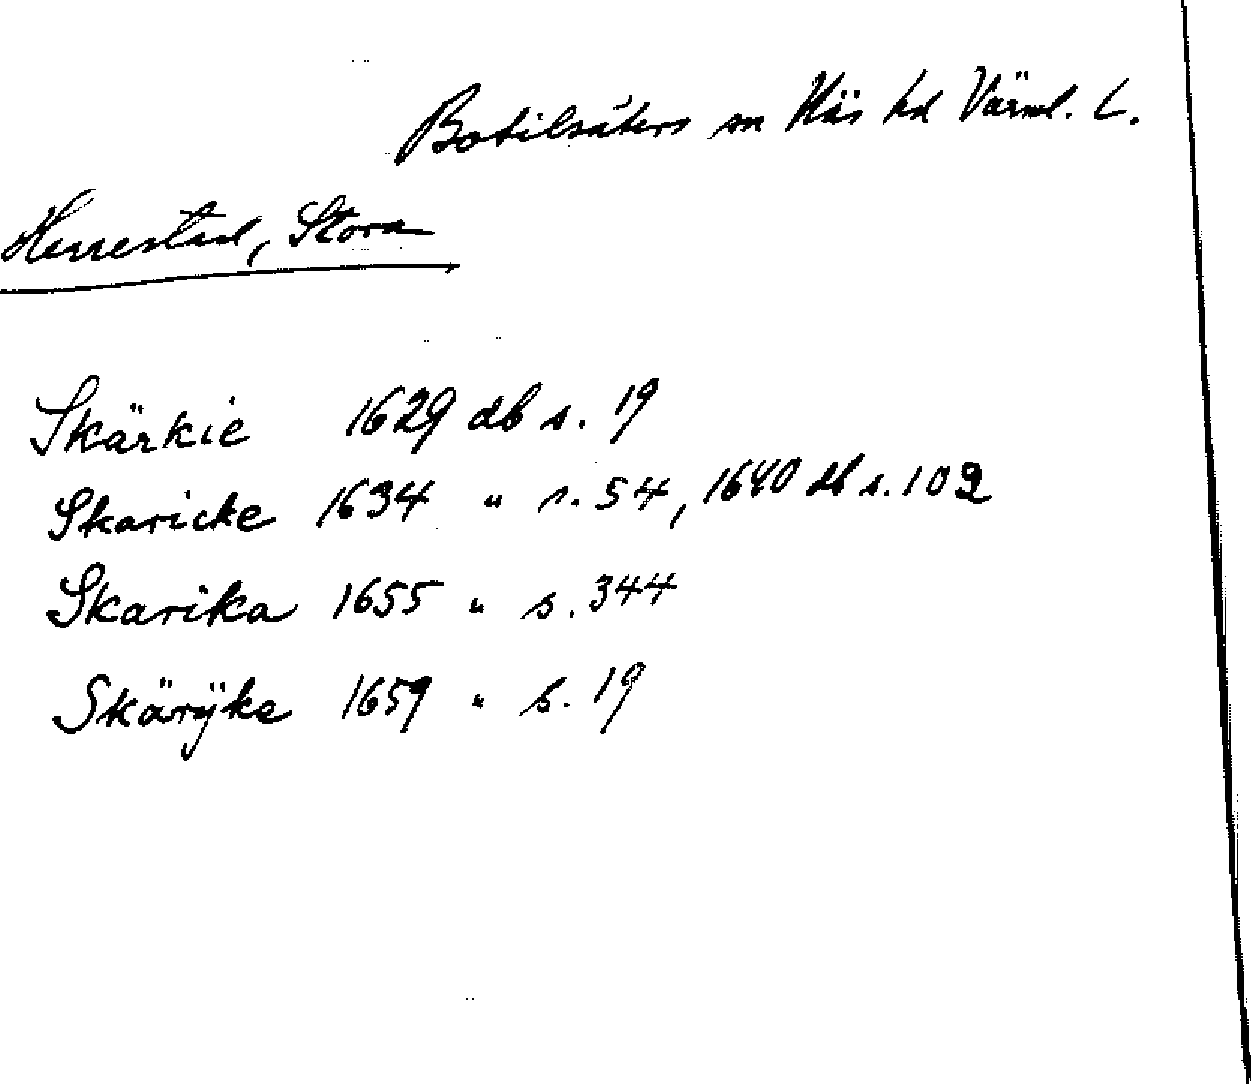 Botilsäters sn Näs hd Värml. L.
Herrestad, Stora
Skärkie 1629 db s. 19
Skaricke 1634 " s. 54, 1640 db s. 102
Skarika 1655 " s. 344
Skärÿke 1659 " s. 19